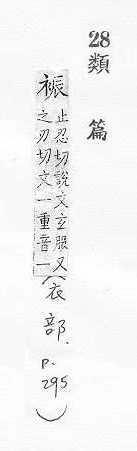 28
類篇
裖
止忍切說文玄服又
之刃切文一重音一
(衣部.
p.
295
)